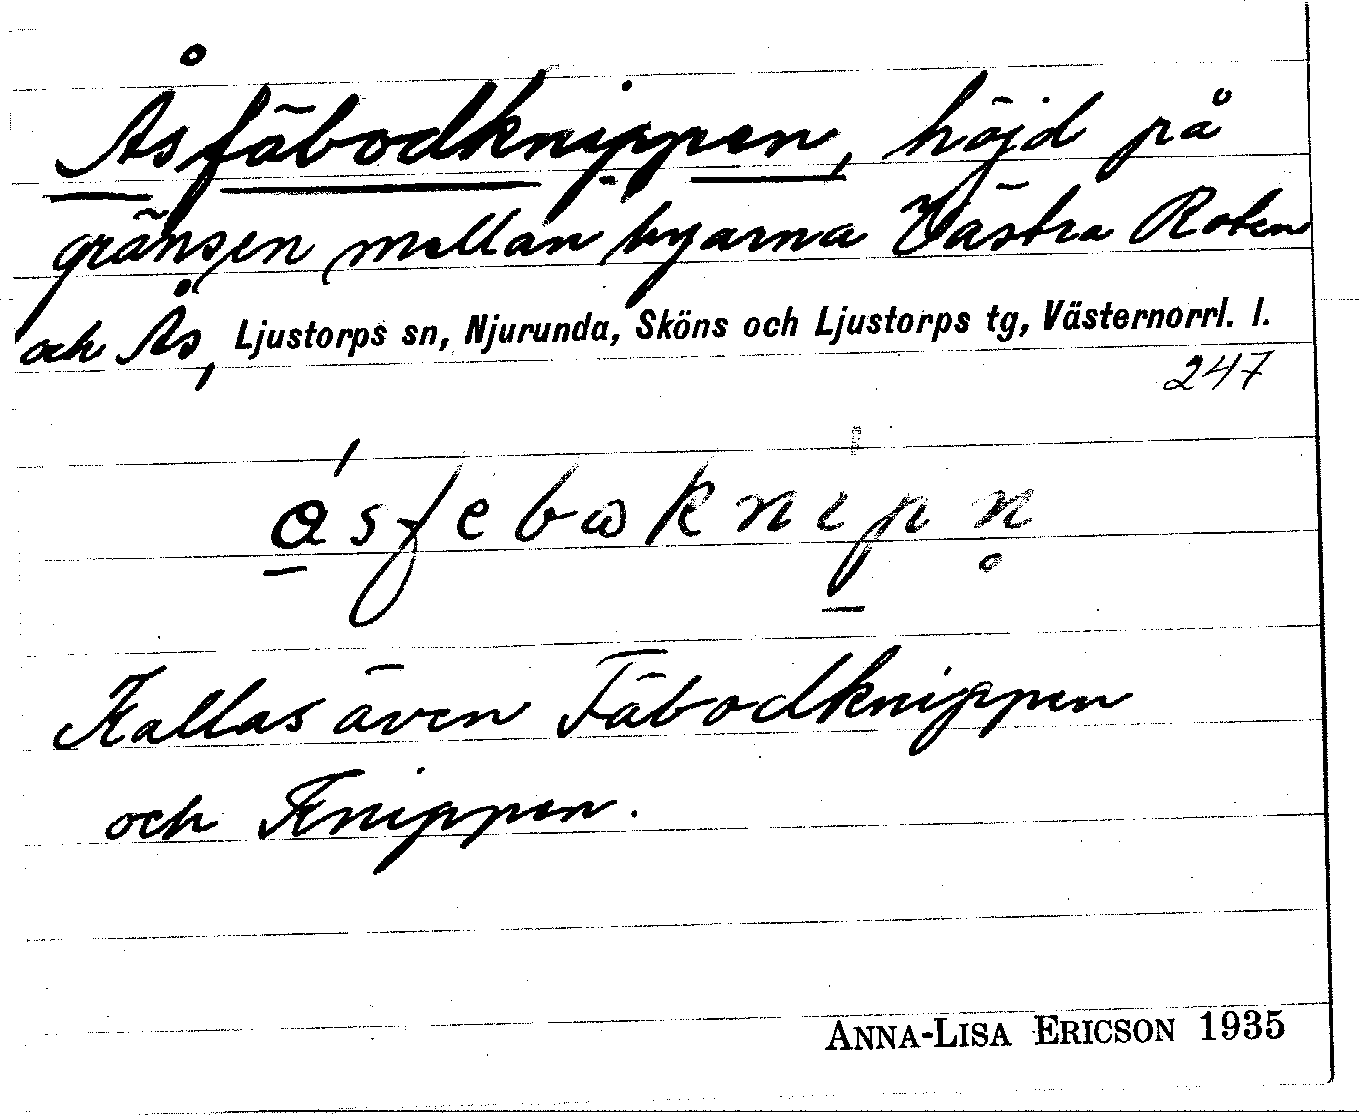 Åsfäbodknippen, höjd på
gränsen mellan byarna Västra Roten
och Ås, Ljustorps sn, Njurunda, Sköns och Ljustorps tg, Västernorrl. l.
247
Kallas även Fäbodknippen
och Knippen.
ANNA-LISA ERICSON 1935